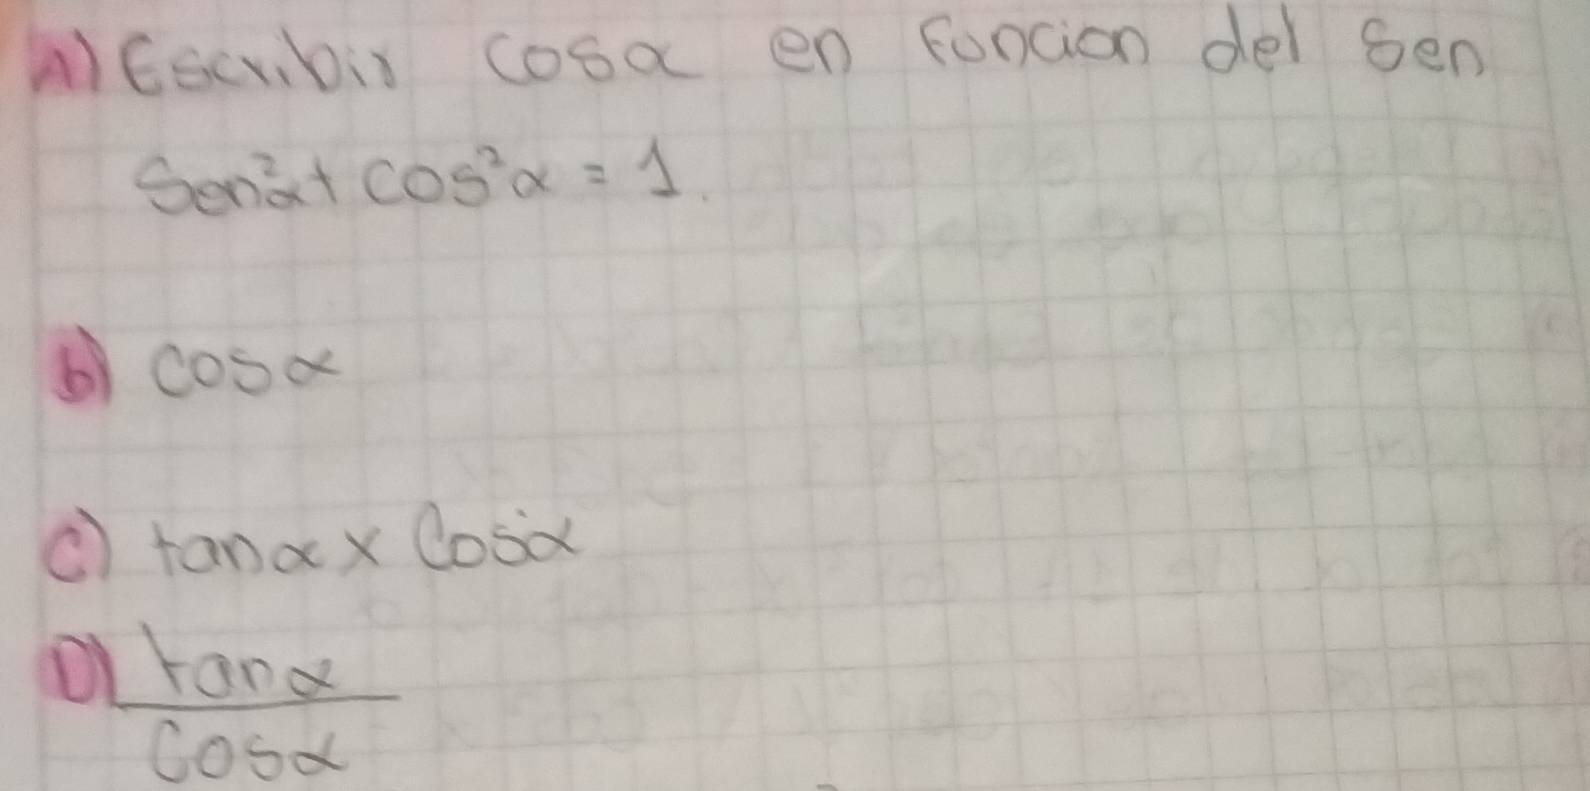 A) Escribir cosα en funcion del sen
Sen²α + cos²α = 1.
b) cosα
c) tanα x Cosα
D) tanα
Cosα